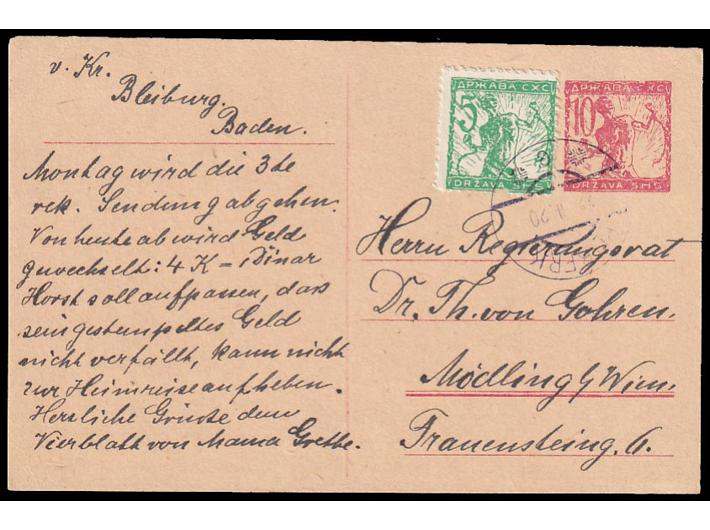 v. Kr.
Bleiburg.
Baden.
Montag wird die 3te
rek. Sendung abgehen.
Von heute ab wird Geld
gewechselt: 4 K = 1 Dinar
Horst soll aufpassen, das
sein gestempeltes Geld
nicht verfällt, kann nicht
zur Heimreise aufheben.
Herzliche Grüsse dem
Vierblatt von Mama Grethe.
ДРЖАВА СХС
5
DRŽAVA SHS
ДРЖАВА СХС
10
DRŽAVA SHS
20
Herrn Regierungsrat
Dr. Th. von Gohren.
Mödling b/ Wien.
Frauensteing. 6.